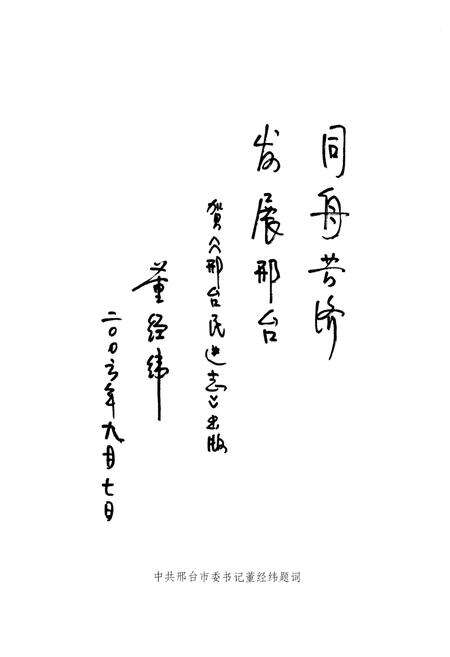 同舟共济
发展邢台
贺《邢台民进志》出版
董经纬
二〇〇六年九月七日
中共邢台市委书记董经纬题词